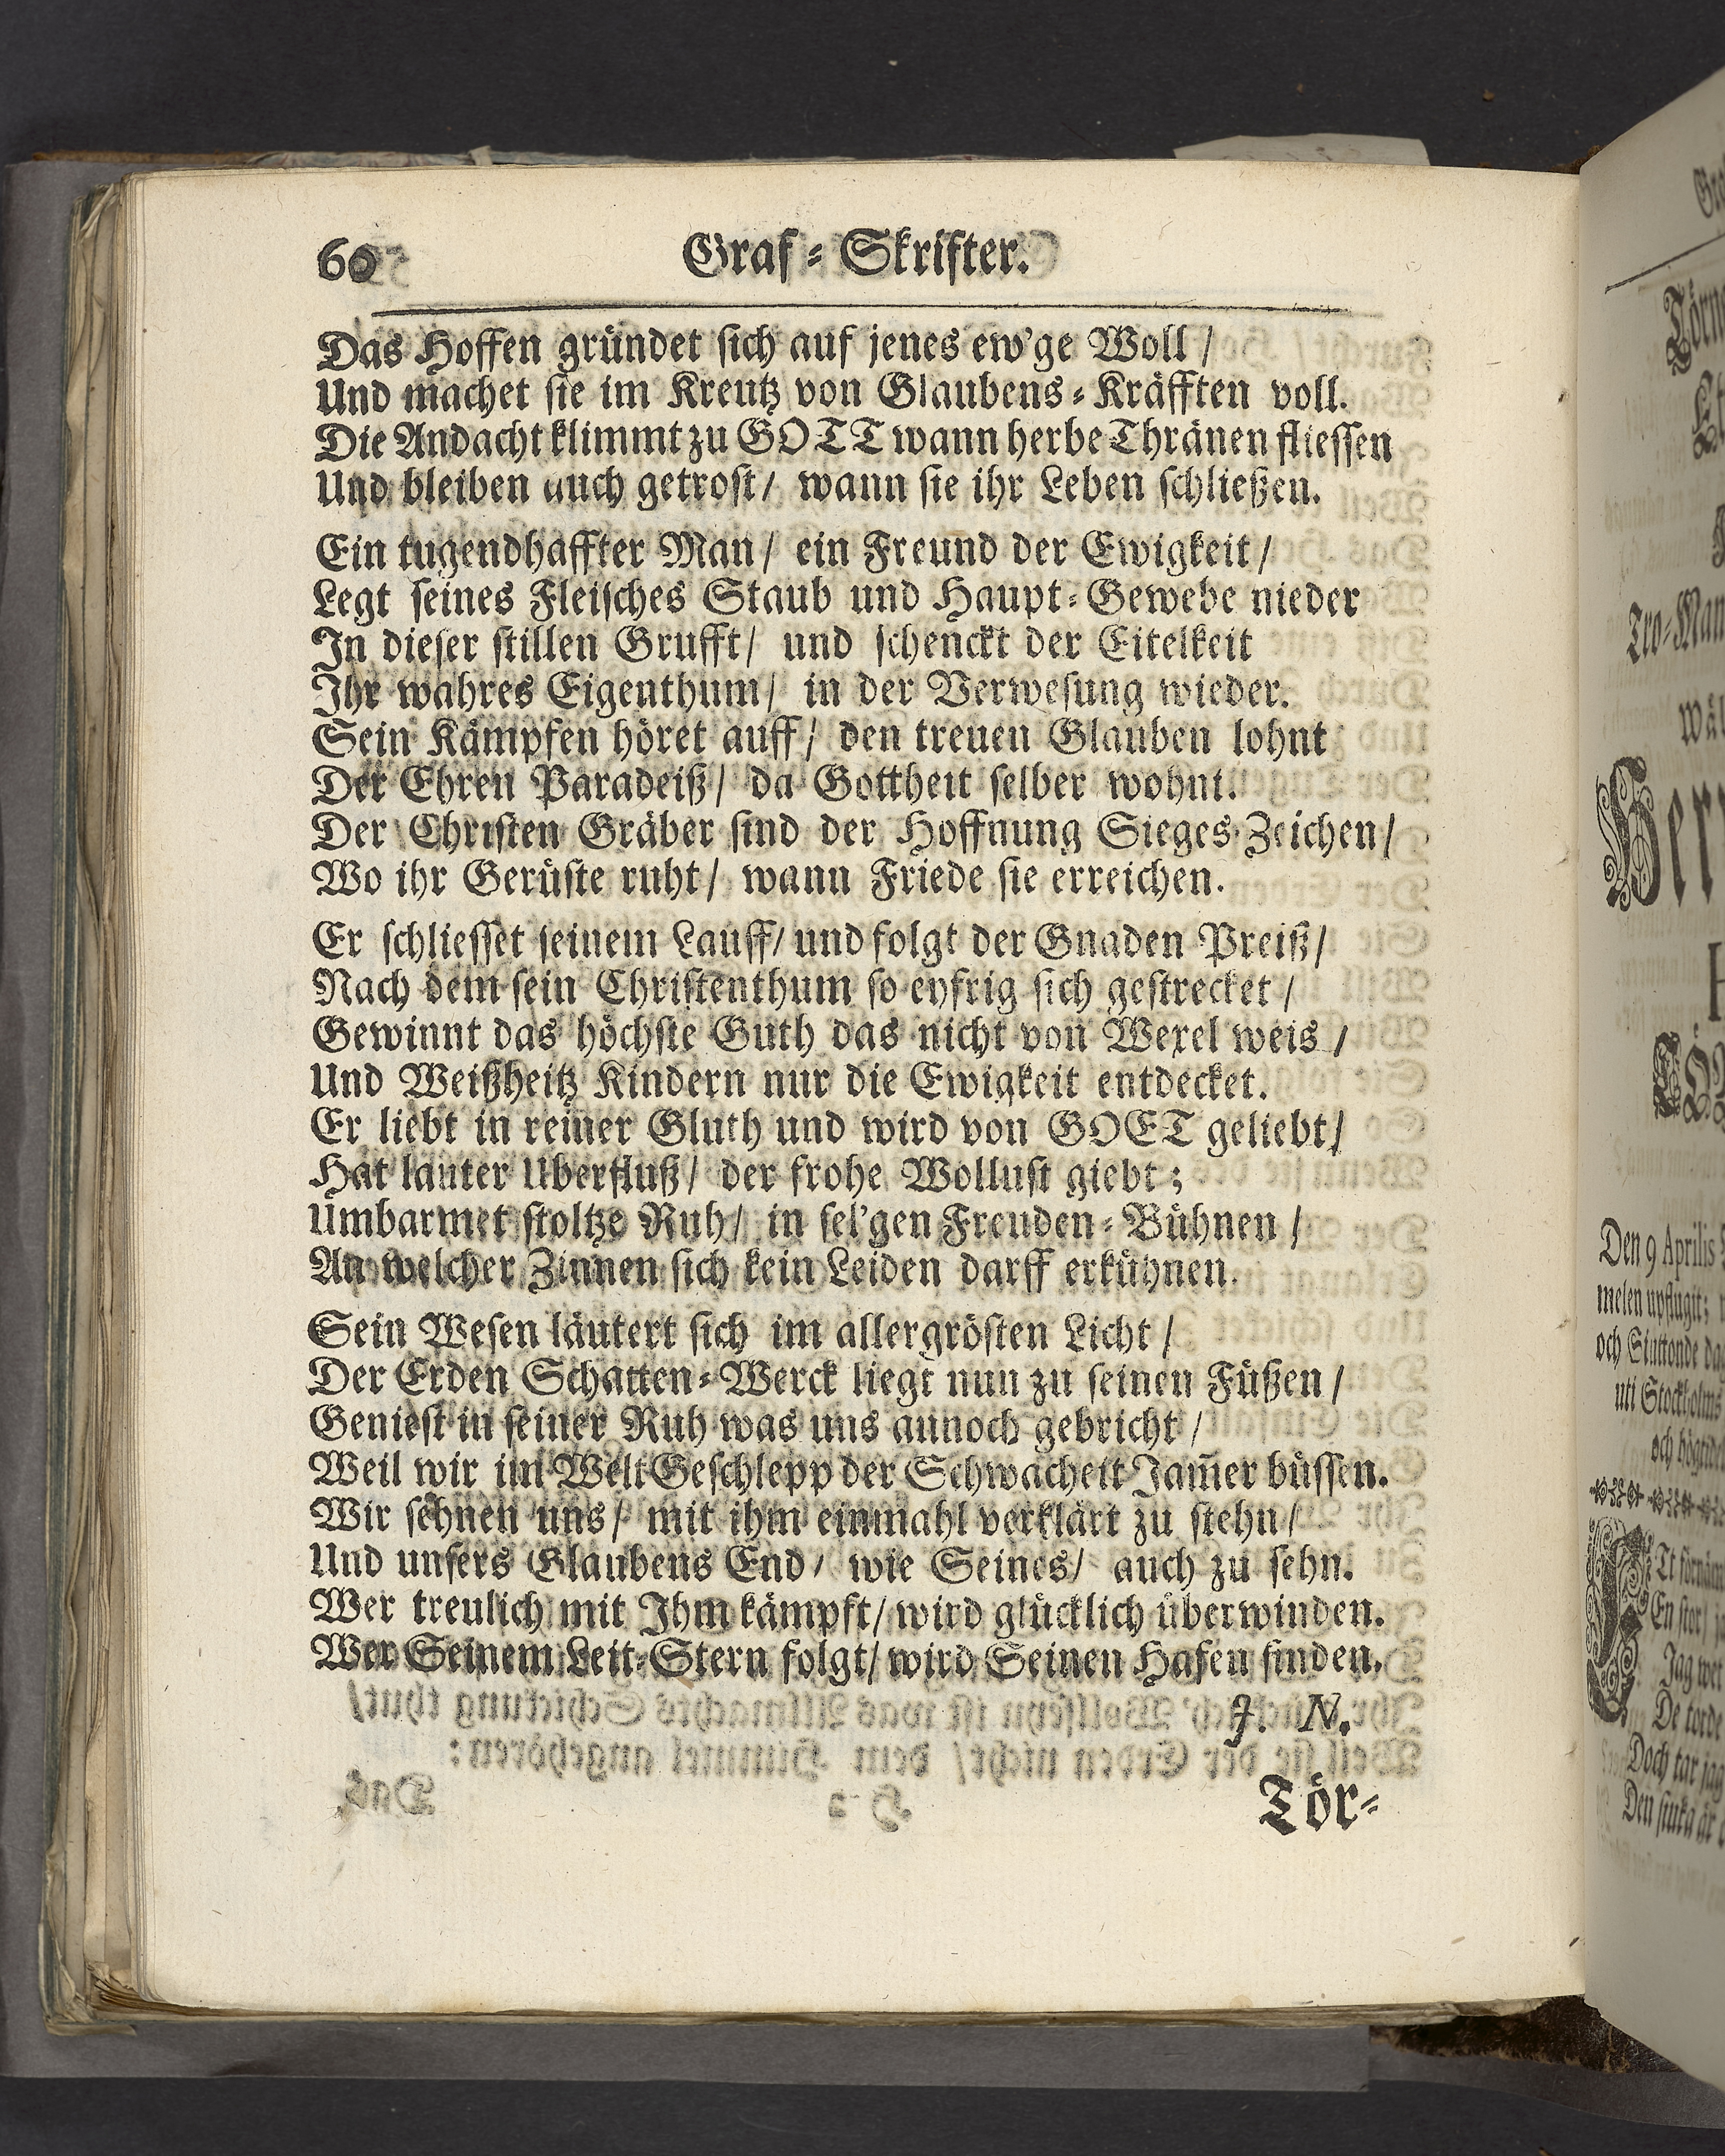 60 Graf-Skrifter.
Das Hoffen gründet sich auf jenes ew'ge Woll /
Und machet sie im Kreutz von Glaubens-Kräfften voll.
Die Andacht klimmt zu GOTT wann herbe Thränen fliessen
Und bleiben auch getrost / wann sie ihr Leben schließen.
Ein tugendhaffter Man / ein Freund der Ewigkeit /
Legt seines Fleisches Staub und Haupt-Gewebe nieder
In dieser stillen Grufft / und schenckt der Eitelkeit
Ihr wahres Eigenthum / in der Verwesung wieder.
Sein Kämpfen höret auff / den treuen Glauben lohnt
Der Ehren Paradeiß / da Gottheit selber wohnt.
Der Christen Gräber sind der Hoffnung Sieges-Zeichen /
Wo ihr Gerüste ruht / wann Friede sie erreichen.
Er schliesset seinem Lauff / und folgt der Gnaden Preiß /
Nach dem sein Christenthum so eyfrig sich gestrecket /
Gewinnt das höchste Guth das nicht von Wexel weis /
Und Weißheitz Kindern nur die Ewigkeit entdecket.
Er liebt in reiner Gluth und wird von GOET geliebt /
Hat lauter Uberfluß / der frohe Wollust giebt ;
Umbarmet stoltze Ruh / in sel'gen Freuden-Bühnen /
An welcher Zinnen sich kein Leiden darff erkühnen.
Sein Wesen läutert sich im allergrösten Licht /
Der Erden Schatten-Werck liegt nun zu seinen Füßen /
Geniest in seiner Ruh was uns annoch gebricht /
Weil wir im Welt Geschlepp der Schwacheit Jam̄er büssen.
Wir sehnen uns / mit ihm einmahl verklärt zu stehn /
Und unsers Glaubens End / wie Seines / auch zu sehn.
Wer treulich mit Ihm kämpft / wird glücklich überwinden.
Wer Seinem Leit-Stern folgt / wird Seinen Hafen finden.
J. N.
Tör-
Herr
Den 9 Aprilis